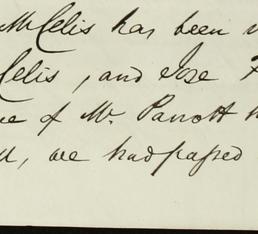 McCelis has been
Celis, and Jose
of Mr. Parrott
, we had passed